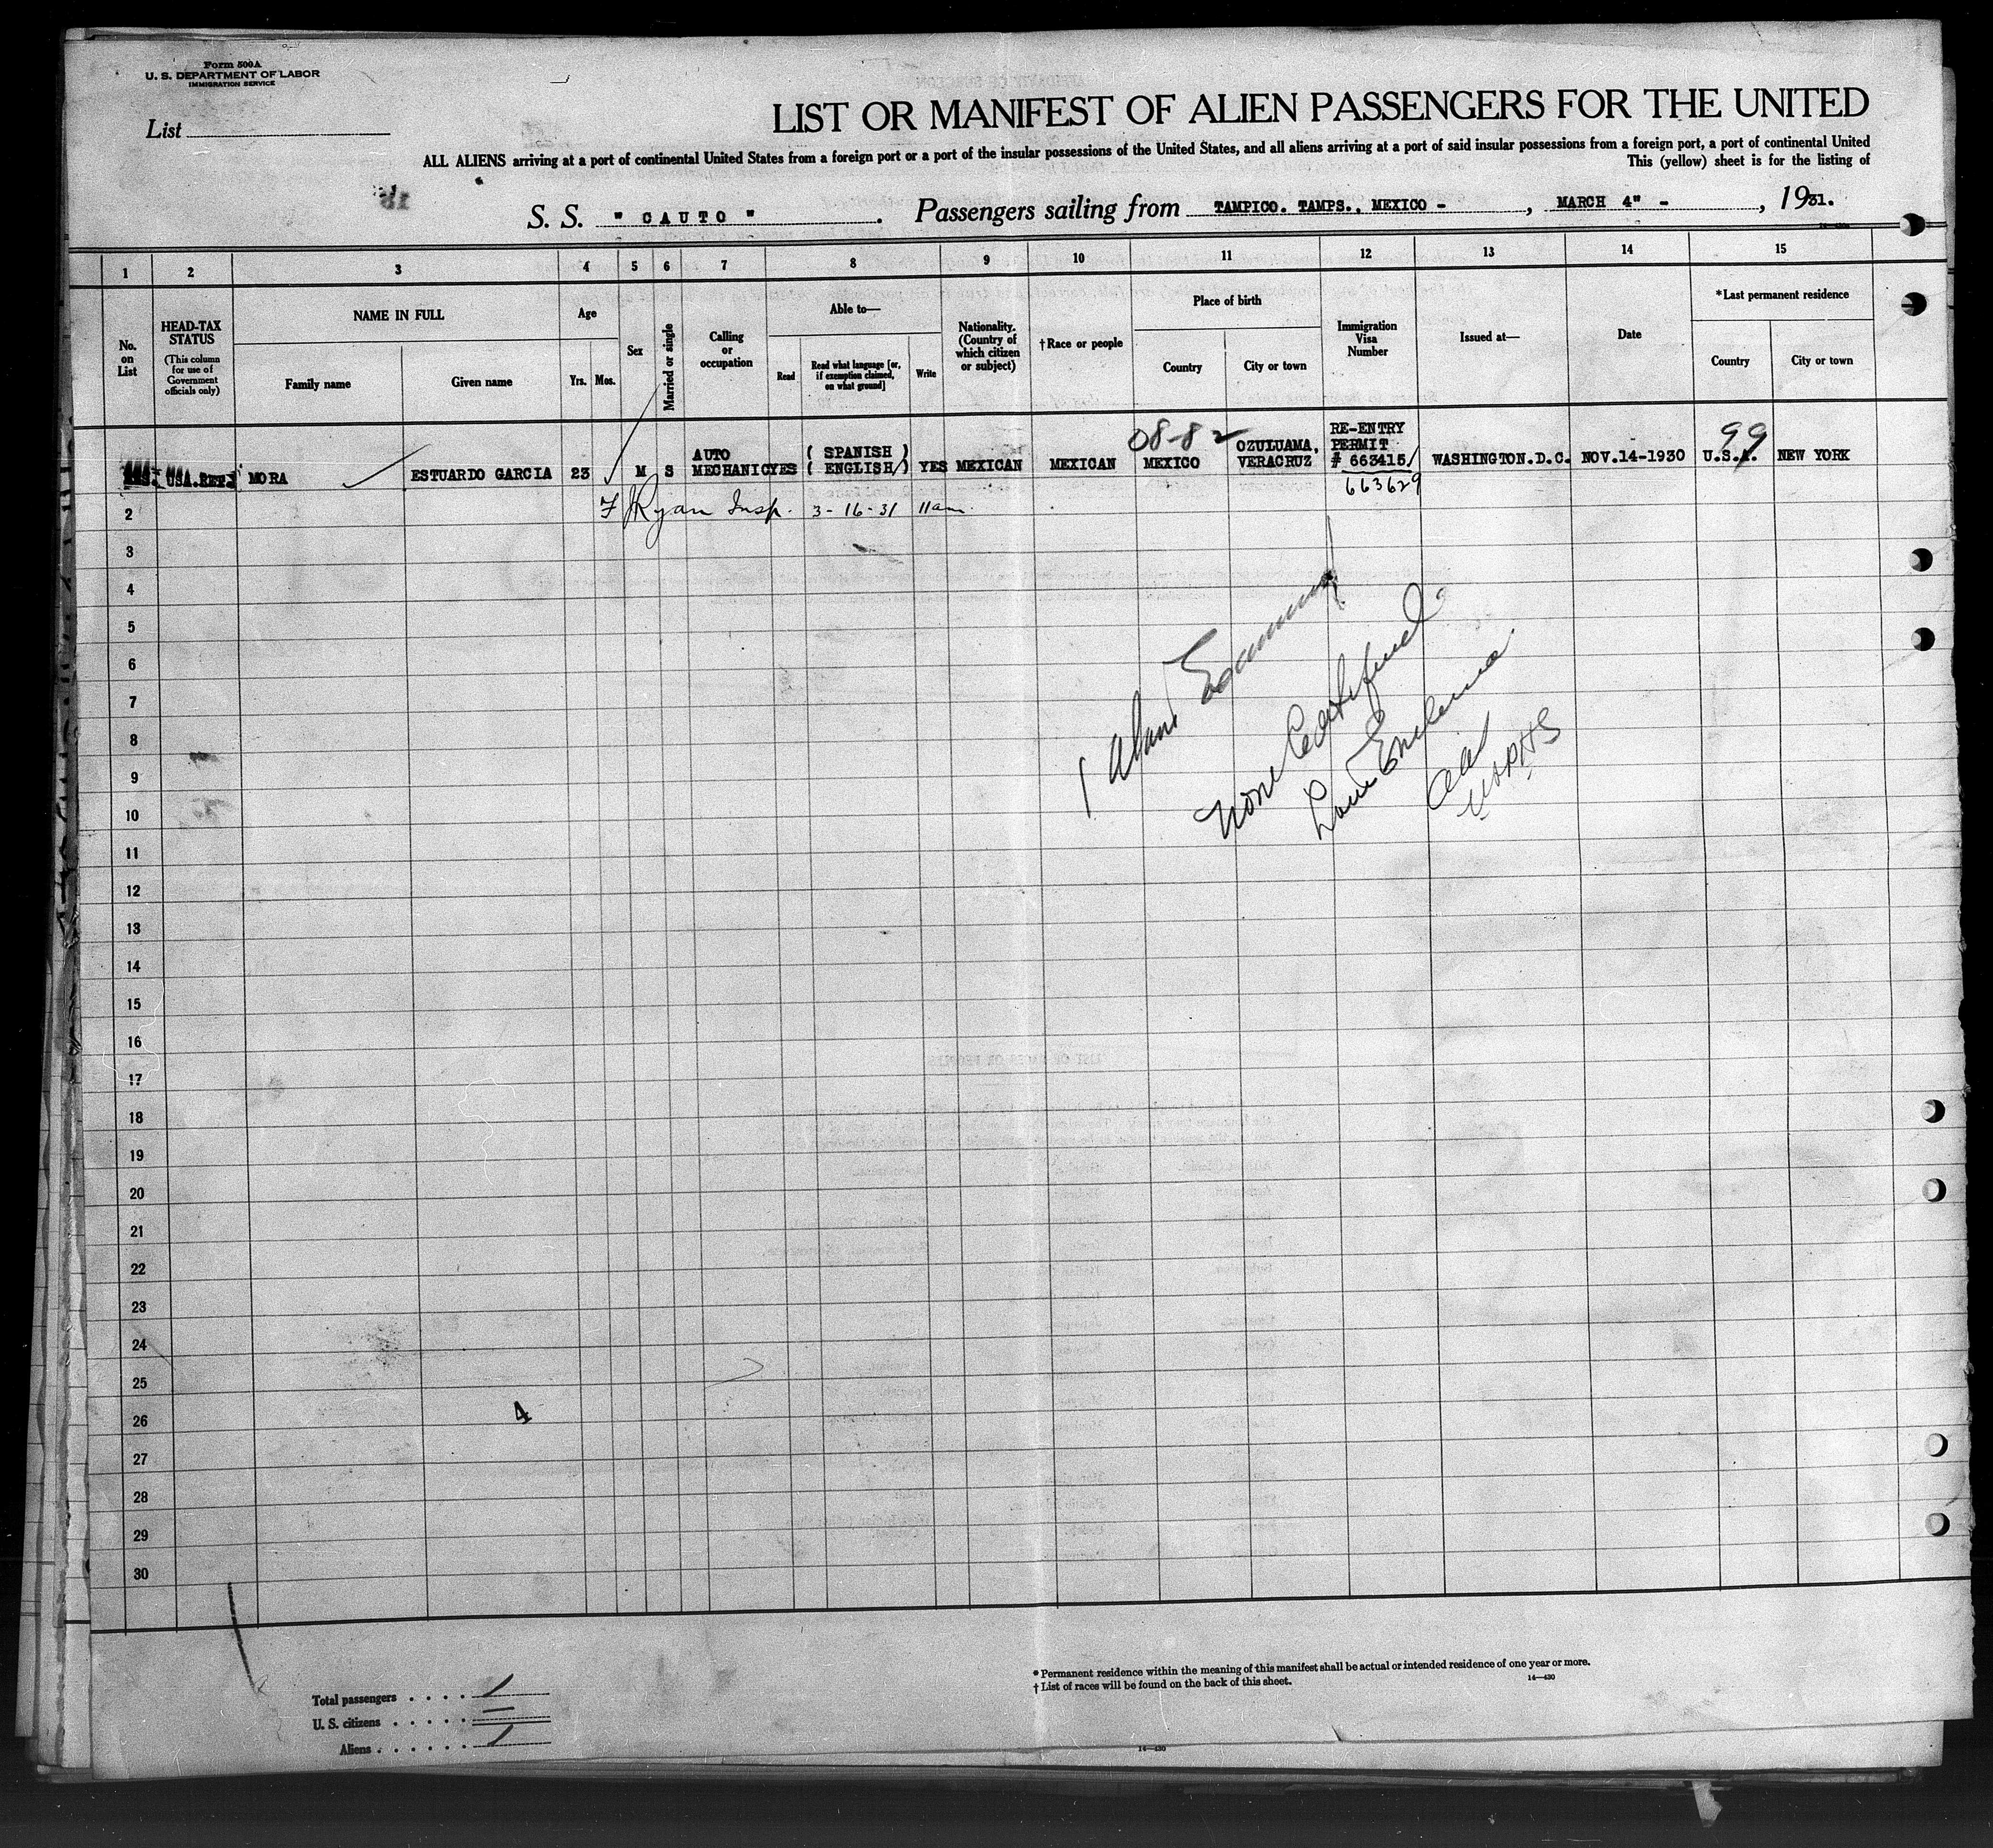 Form 500A
U. S. DEPARTMENT OF LABOR
IMMIGRATION SERVICE
List
LIST OR MANIFEST OF ALIEN PASSENGERS FOR THE UNITED
ALL ALIENS arriving at a port of continental United States from a foreign port or a port of the insular possessions of the United States, and all aliens arriving at a port of said insular possessions from a foreign port, a port of continental United
This (yellow) sheet is for the listing of
S. S. " CAUTO " . Passengers sailing from TAMPICO. TAMPS., MEXICO - , MARCH 4" - , 1931.
1 2 3 4 5 6 7 8 9 10 11 12 13 14 15
No. on List
HEAD-TAX STATUS
(This column for use of Government officials only)
NAME IN FULL
Family name
Given name
Age
Yrs. Mos.
Sex
Married or single
Calling or occupation
Able to—
Read
Read what language [or, if exemption claimed, on what ground]
Write
Nationality. (Country of which citizen or subject)
† Race or people
Place of birth
Country
City or town
Immigration Visa Number
Issued at—
Date
*Last permanent residence
Country
City or town
USA. MORA ESTUARDO GARCIA 23 M S AUTO MECHANIC YES ( SPANISH ) ( ENGLISH ) YES MEXICAN MEXICAN MEXICO OZULUAMA, VERACRUZ RE-ENTRY PERMIT # 663415/ WASHINGTON.D.C. NOV.14-1930 U.S.A. NEW YORK
08-82
99
663629
2 Ryan Insp. 3-16-31 11am.
3
4
5
6
7
8
9
10
11
12
13
14
15
16
17
18
19
20
21
22
23
24
25
26
27
28
29
30
1 Alien
None Certified
USPHS
4
Total passengers . . . . 1
U. S. citizens . . . . . —
Aliens . . . . . . 1
* Permanent residence within the meaning of this manifest shall be actual or intended residence of one year or more.
† List of races will be found on the back of this sheet.
14—430
14—430